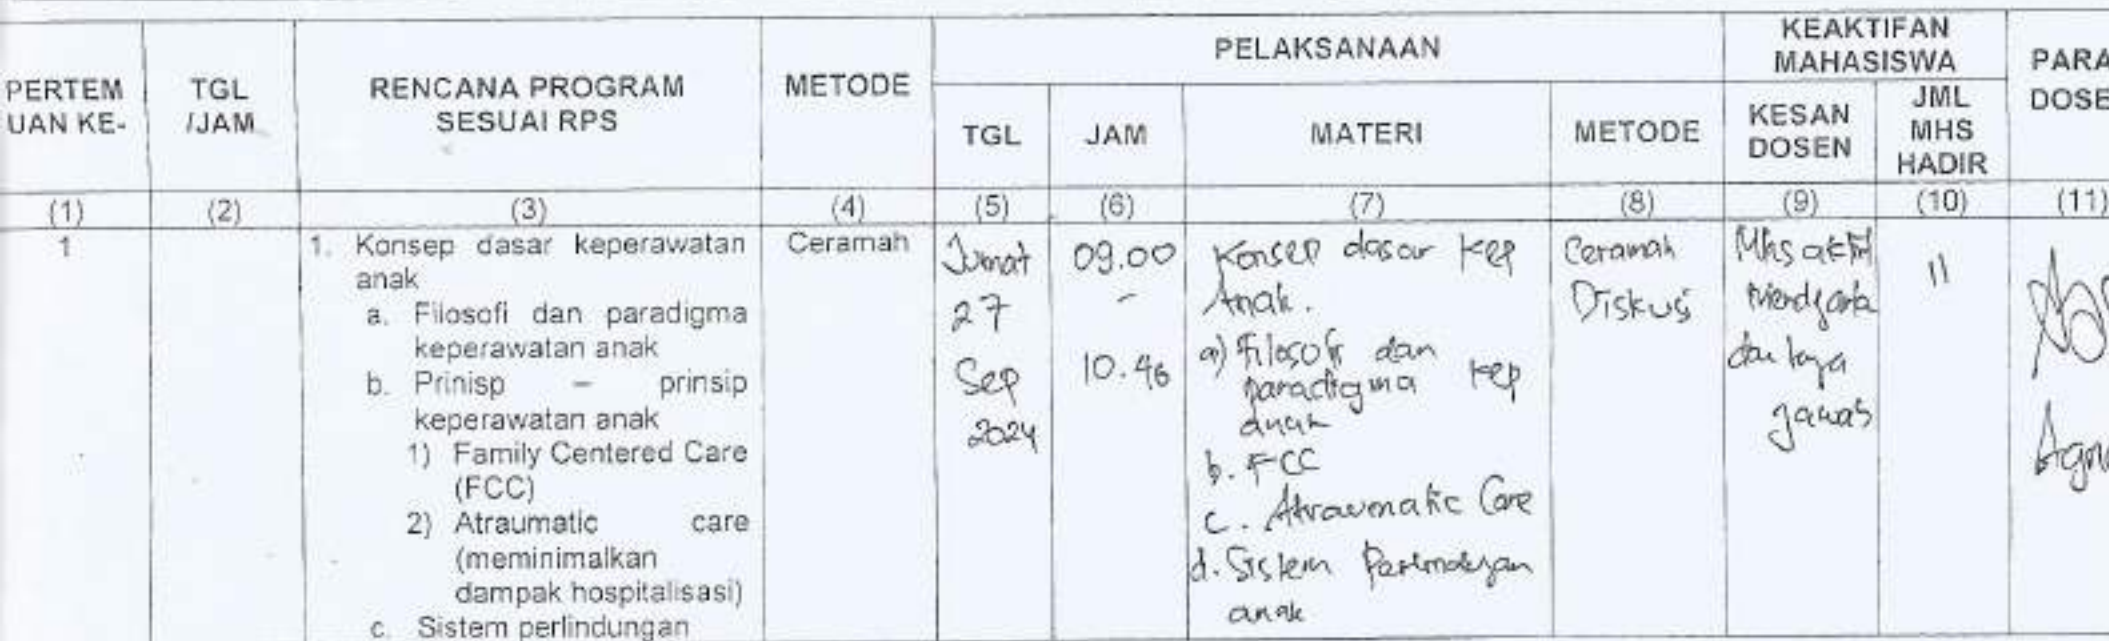 PERTEM
UAN KE-
TGL
/JAM
RENCANA PROGRAM
SESUAI RPS
METODE
PELAKSANAAN
TGL
JAM
MATERI
METODE
KEAKTIFAN
MAHASISWA
KESAN
DOSEN
JML
MHS
HADIR
PARA
DOSE
(1) (2) (3) (4) (5) (6) (7) (8) (9) (10) (11)
1
1. Konsep dasar keperawatan
anak
a. Filosofi dan paradigma
keperawatan anak
b. Prinisp – prinsip
keperawatan anak
1) Family Centered Care
(FCC)
2) Atraumatic care
(meminimalkan
dampak hospitalisasi)
c. Sistem perlindungan
Ceramah
Jumat
27
Sep
2024
09.00
-
10.46
Konsep dasar kep
Anak.
a) Filosofi dan
paradigma kep
anak
b. FCC
c. Atraumatic Care
d. Sistem Perlindungan
anak
Ceramah
Diskusi
Mhs aktif
dan
jawab
11